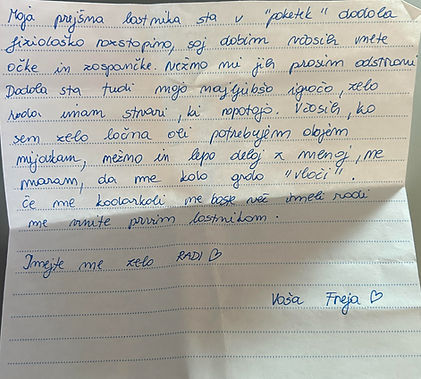 Moja prejšna lastnika sta v "paketek" dodala
fiziološko raztopino, saj dobim včasih vnete
očke in zaspančke. Nežno mi jih prosim odstrani
Dodala sta tudi mojo najljubšo igračo, zelo
rada imam stvari, ki ropotajo. Včasih, ko
sem zelo lačna ali potrebujem objem
mijavkam, nežno in lepo delaj z menoj, ne
maram, da me kdo grdo "vlači".
če me kadarkoli ne boste več imeli radi
me vrnite prvim lastnikom.
Imejte me zelo RADI ♡
Vaša Freja ♡